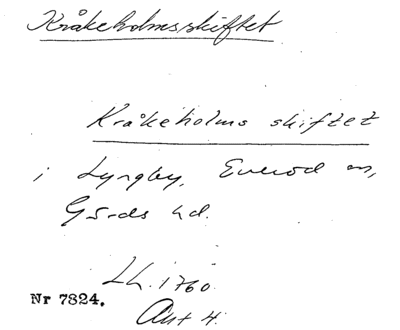 Kråkeholmsskiftet
Kråkeholms skiftet
i Lyngby, Everöd sn,
Gärds hd.
Lh. 1760.
Nr 7824.
Akt 4.